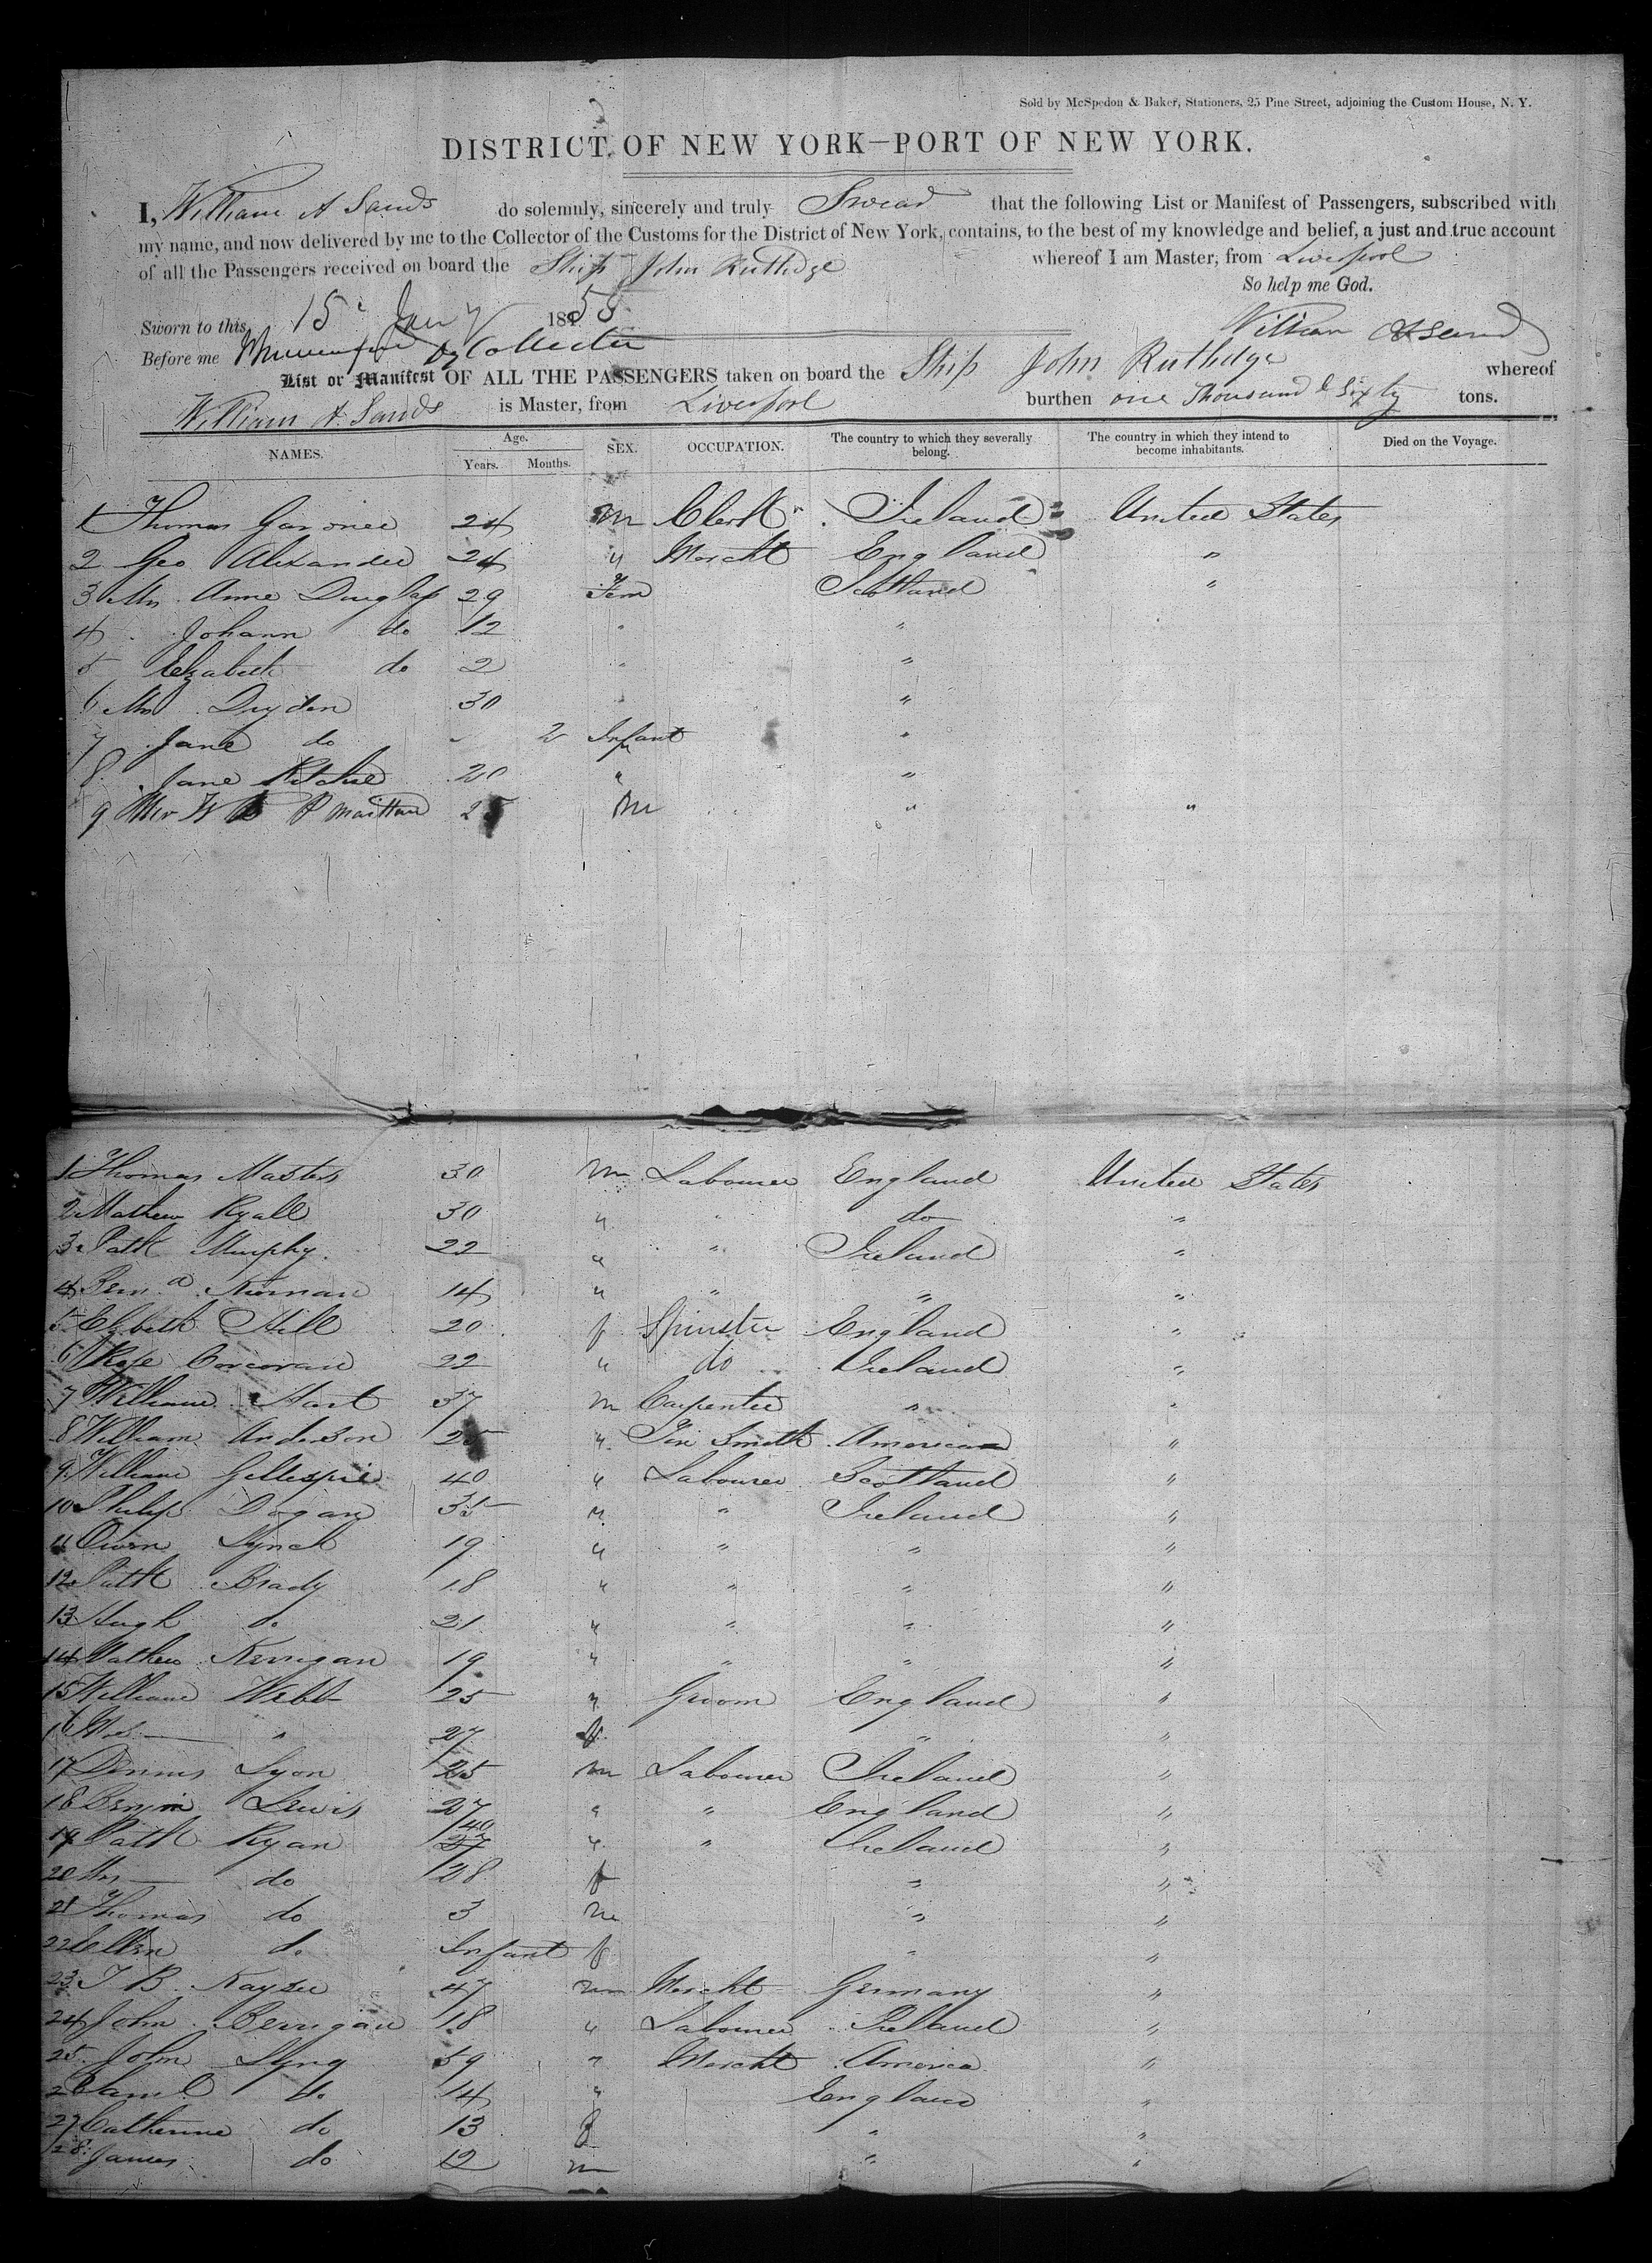 Sold by McSpedon & Baker, Stationers, 25 Pine Street, adjoining the Custom House, N. Y.
DISTRICT OF NEW YORK—PORT OF NEW YORK.
I, William A Sands do solemnly, sincerely and truly Swear that the following List or Manifest of Passengers, subscribed with
my name, and now delivered by me to the Collector of the Customs for the District of New York, contains, to the best of my knowledge and belief, a just and true account
of all the Passengers received on board the Ship John Rutledge whereof I am Master, from Liverpool
So help me God.
Sworn to this 15 Jany 18455
William A Sands
Before me Dy Collector
List or Manifest OF ALL THE PASSENGERS taken on board the Ship John Rutledge whereof
William A. Sands is Master, from Liverpool burthen one Thousand & Sixty tons.
NAMES. Age. Years. Months. SEX. OCCUPATION. The country to which they severally belong. The country in which they intend to become inhabitants. Died on the Voyage.
1 Thomas Gardner 24 m Clerk Ireland United States
2 Geo Alexander 24 " Marcht England "
3 Mrs Anne Douglas 29 Fem Scotland "
4 Johann do 12 " "
5 Elizabeth do 2 " "
6 Mrs Dryden 30 " "
7 Jane do 2 Infant "
8 Jane Ritchie 20 " "
9 Mr W 25 m " "
1 Thomas Masters 30 m Labourer England United States
2 Mathew Ryall 30 " " do "
3 Patk Murphy 22 " " Ireland "
4 Bernd Kiernan 14 " " " "
5 Elzbeth Hill 20 f Spinster England "
6 Rose Corcoran 22 " do Ireland "
7 William Hart 37 m Carpenter " "
8 William Anderson 25 " Tin Smith America "
9 William Gillespie 40 " Labourer Scotland "
10 Philip Dogan 35 " " Ireland "
11 Owen Lynch 19 " " " "
12 Patk Brady 18 " " " "
13 Hugh do 21 " " " "
14 Mathew Kerrigan 19 " " " "
15 William Webb 25 " Groom England "
16 Mrs — " 27 f " "
17 Dennis Lyon 25 m Labourer Ireland "
18 Benjm Lewis 27 " " England "
19 Patk Ryan 40 27 " " Ireland "
20 Mrs — do 28 f " "
21 Thomas do 3 m " "
22 Ellen do Infant f " "
23 J B Kayser 47 m Marcht Germany "
24 John Berrigan 18 " Labourer Ireland "
25 John Lyng 59 " Marcht America "
26 Saml do 14 " England "
27 Catherine do 13 f " "
28 James do 12 m " "